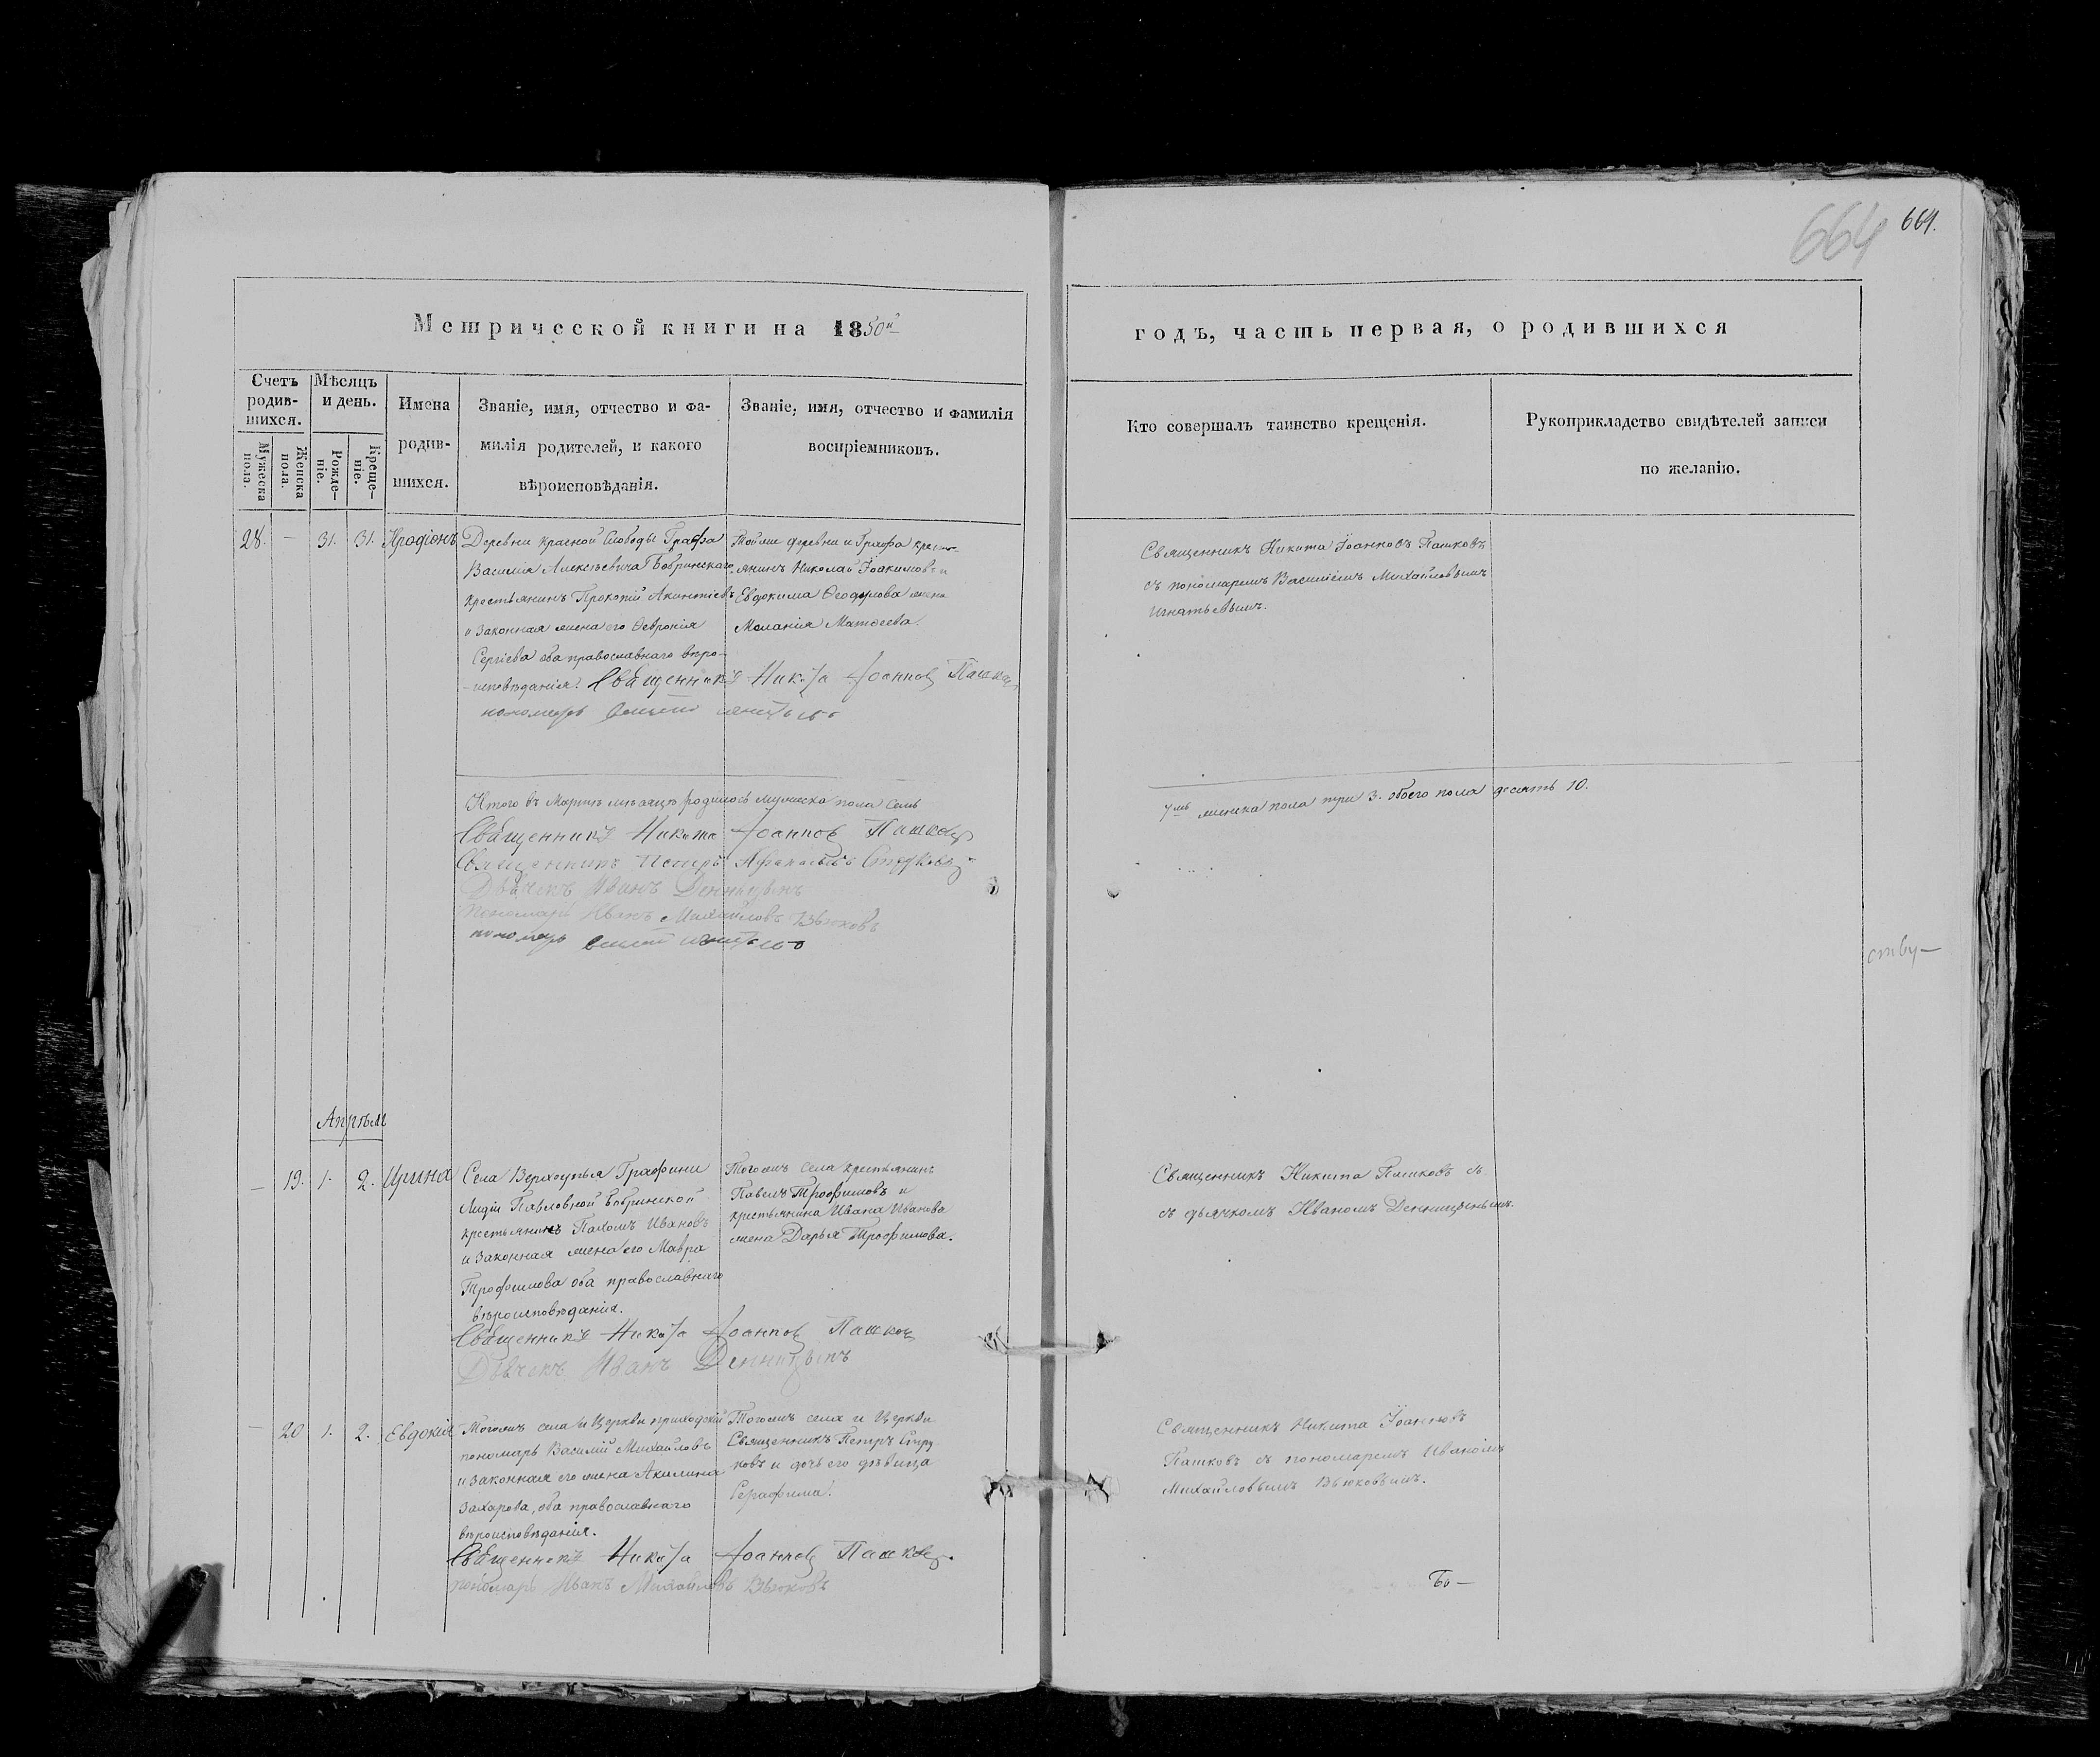 664 664.
Метрической книги на 1850й
годъ, часть первая, о родившихся
Счетъ родив-шихся.
Мужеска пола.
Женска пола.
Мѣсяцъ и день.
Рожде-ніе.
Креще-ніе.
Имена
родив-
шихся.
Званіе, имя, отчество и фа-
милія родителей, и какого
вѣроисповѣданія.
Званіе, имя, отчество и фамилія
воспріемниковъ.
Кто совершалъ таинство крещенія.
Рукоприкладство свидѣтелей записи
по желанію.
28. — 31. 31. Иродіонъ
Деревни Красной Слободы Графа
Василія Алексѣевича Бобринскаго
крестьянинъ Прокопій
и законная жена его Февронія
Сергіева оба православнаго вѣро-
-исповѣданія.
Тойже деревни и Графа кресть-
янинъ Николай Іоакимовъ и
Евдокима Ѳеодулова жена
Меланія Матѳеева.
Священникъ Никита Іоанновъ Пашковъ
съ пономаремъ Василіемъ Михайловымъ
Игнатьевымъ.
Священникъ Никита Іоанновъ Пашковъ
пономарь
Итого въ Мартѣ мѣсяцѣ родилось мужеска пола семь
7мь женска пола три 3. обоего пола десять 10.
Священникъ Никита Іоанновъ Пашковъ
Священникъ Петръ
Дьячекъ Иванъ Денницынъ
Пономарь Иванъ Михайловъ Вьюковъ
пономарь
ству—
Апрѣль
— 19. 1. 2. Ирина
Села Верхоупья Графини
Лидіи Павловной Бобринской
крестьянинъ Пахомъ Ивановъ
и законная жена его Мавра
Трофимова оба православнаго
вѣроисповѣданія.
Тогожъ села крестьянинъ
Павелъ Трофимовъ и
крестьянина Ивана Иванова
жена Дарья Трофимова.
Священникъ Никита Пашковъ съ
съ дьячкомъ Иваномъ Денницынымъ.
Священникъ Никита Іоанновъ Пашковъ
Дьячекъ Иванъ Денницынъ
— 20 1. 2. Евдокія
Тогожъ села и Церкви приходскій
пономарь Василій Михайловъ
и законная его жена Акилина
Захарова, оба православнаго
вѣроисповѣданія.
Тогожъ села и Церкви
Священникъ Петръ
и дочь его дѣвица
Серафима.
Священникъ Никита Іоанновъ
Пашковъ съ пономаремъ Иваномъ
Михайловымъ Вьюковымъ.
Священникъ Никита Іоанновъ Пашковъ.
пономарь Иванъ Михайловъ Вьюковъ